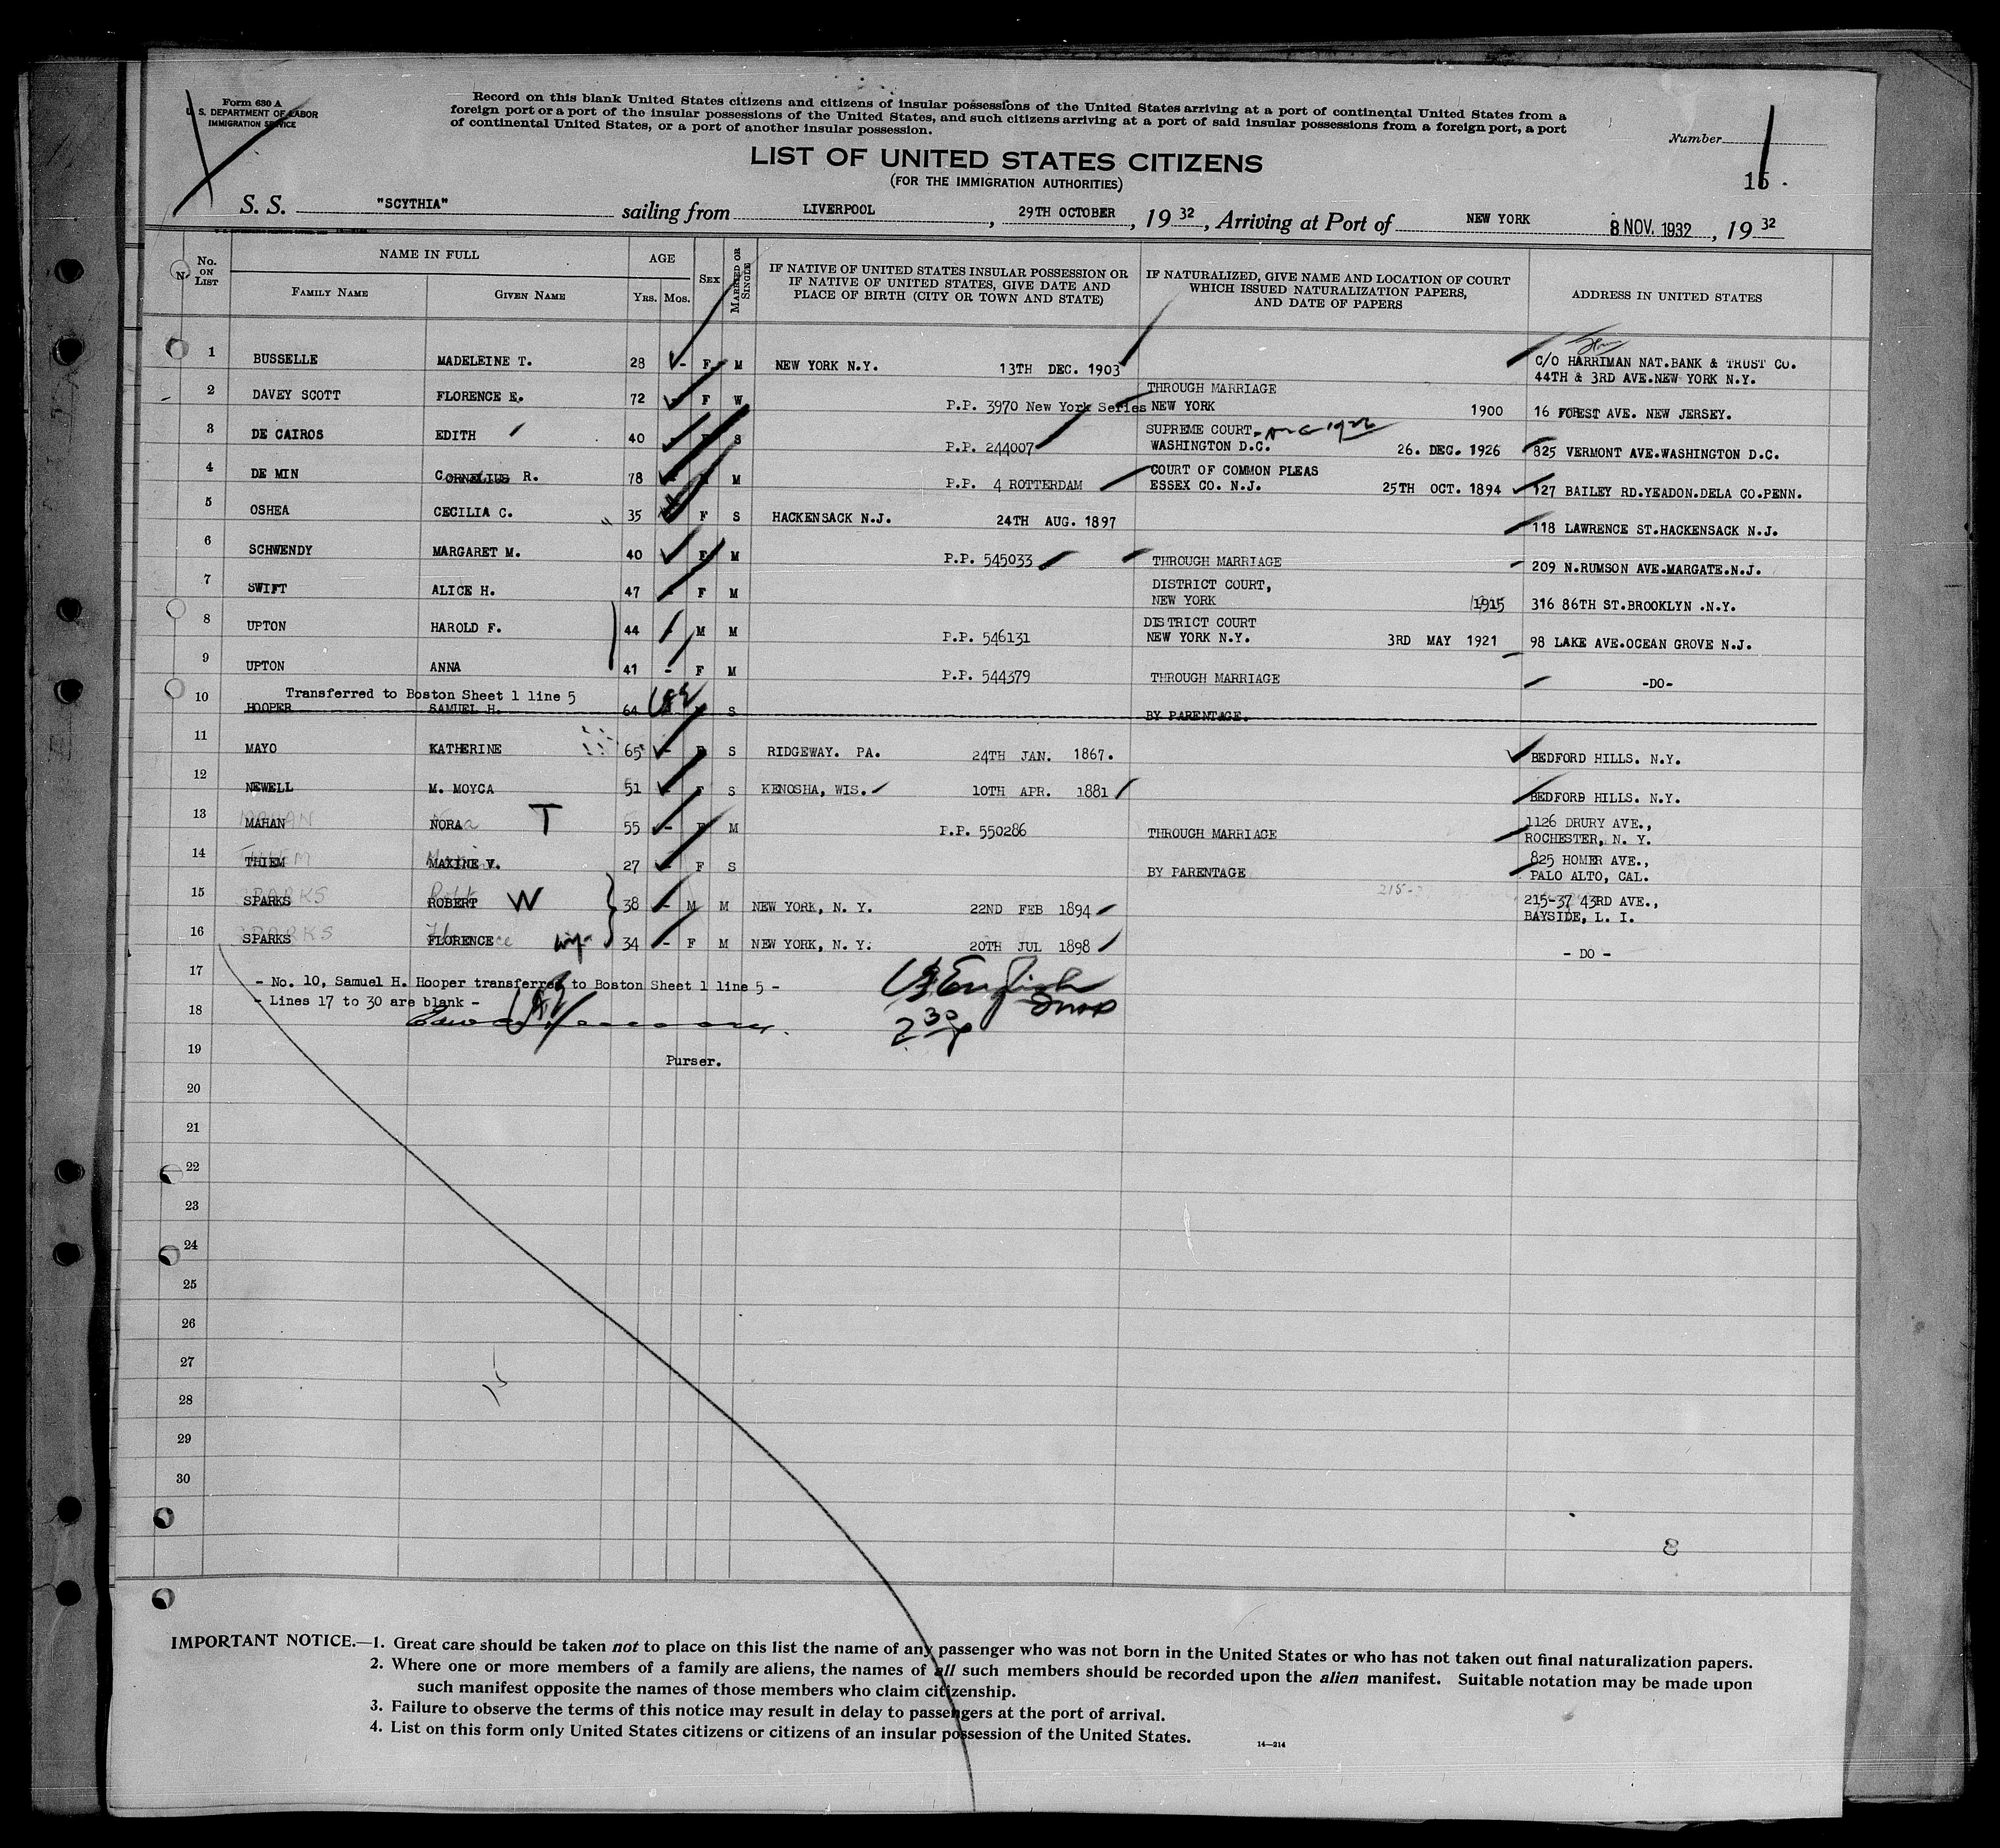 Form 630 A
U. S. DEPARTMENT OF LABOR
IMMIGRATION SERVICE
Record on this blank United States citizens and citizens of insular possessions of the United States arriving at a port of continental United States from a
foreign port or a port of the insular possessions of the United States, and such citizens arriving at a port of said insular possessions from a foreign port, a port
of continental United States, or a port of another insular possession.
Number
15
LIST OF UNITED STATES CITIZENS
(FOR THE IMMIGRATION AUTHORITIES)
S. S. "SCYTHIA" sailing from LIVERPOOL, 29TH OCTOBER, 19 32, Arriving at Port of NEW YORK 8 NOV. 1932, 19 32
No. ON LIST NAME IN FULL AGE SEX MARRIED OR SINGLE IF NATIVE OF UNITED STATES INSULAR POSSESSION OR IF NATIVE OF UNITED STATES, GIVE DATE AND PLACE OF BIRTH (CITY OR TOWN AND STATE) IF NATURALIZED, GIVE NAME AND LOCATION OF COURT WHICH ISSUED NATURALIZATION PAPERS, AND DATE OF PAPERS ADDRESS IN UNITED STATES
FAMILY NAME GIVEN NAME Yrs. Mos.
1 BUSSELLE MADELEINE T. 28 - F M NEW YORK N.Y. 13TH DEC. 1903 C/O HARRIMAN NAT.BANK & TRUST CO.
44TH & 3RD AVE.NEW YORK N.Y.
2 DAVEY SCOTT FLORENCE E. 72 F W P.P. 3970 New York Series THROUGH MARRIAGE
NEW YORK 1900 16 FOREST AVE. NEW JERSEY.
3 DE CAIROS EDITH 40 S P.P. 244007 SUPREME COURT.
WASHINGTON D.C. 26. DEC. 1926 825 VERMONT AVE.WASHINGTON D.C.
4 DE MIN CORNELIUS R. 78 M P.P. 4 ROTTERDAM COURT OF COMMON PLEAS
ESSEX CO. N.J. 25TH OCT. 1894 127 BAILEY RD.YEADON.DELA CO.PENN.
5 OSHEA CECILIA C. 35 F S HACKENSACK N.J. 24TH AUG. 1897 118 LAWRENCE ST.HACKENSACK N.J.
6 SCHWENDY MARGARET M. 40 F M P.P. 545033 THROUGH MARRIAGE 209 N.RUMSON AVE.MARGATE.N.J.
7 SWIFT ALICE H. 47 - F M DISTRICT COURT,
NEW YORK 1915 316 86TH ST.BROOKLYN .N.Y.
8 UPTON HAROLD F. 44 - M M P.P. 546131 DISTRICT COURT
NEW YORK N.Y. 3RD MAY 1921 98 LAKE AVE.OCEAN GROVE N.J.
9 UPTON ANNA 41 - F M P.P. 544379 THROUGH MARRIAGE -DO-
Transferred to Boston Sheet 1 line 5
10 HOOPER SAMUEL H. 64 S BY PARENTAGE.
11 MAYO KATHERINE 65 - F S RIDGEWAY. PA. 24TH JAN. 1867. BEDFORD HILLS. N.Y.
12 NEWELL M. MOYCA 51 F S KENOSHA, WIS. 10TH APR. 1881 BEDFORD HILLS. N.Y.
13 MAHAN NORA T 55 - F M P.P. 550286 THROUGH MARRIAGE 1126 DRURY AVE.,
ROCHESTER, N. Y.
14 THIEM MAXINE V. 27 - F S BY PARENTAGE 825 HOMER AVE.,
PALO ALTO, CAL.
15 SPARKS ROBERT W 38 - M M NEW YORK, N. Y. 22ND FEB 1894 215-37 43RD AVE.,
BAYSIDE, L. I.
16 SPARKS FLORENCE wife 34 - F M NEW YORK, N. Y. 20TH JUL 1898 - DO -
17 - No. 10, Samuel H. Hooper transferred to Boston Sheet 1 line 5 -
- Lines 17 to 30 are blank -
18
19 Purser.
20
21
22
23
24
25
26
27
28
29
30
8
IMPORTANT NOTICE.—1. Great care should be taken not to place on this list the name of any passenger who was not born in the United States or who has not taken out final naturalization papers.
2. Where one or more members of a family are aliens, the names of all such members should be recorded upon the alien manifest. Suitable notation may be made upon
such manifest opposite the names of those members who claim citizenship.
3. Failure to observe the terms of this notice may result in delay to passengers at the port of arrival.
4. List on this form only United States citizens or citizens of an insular possession of the United States.
14—214